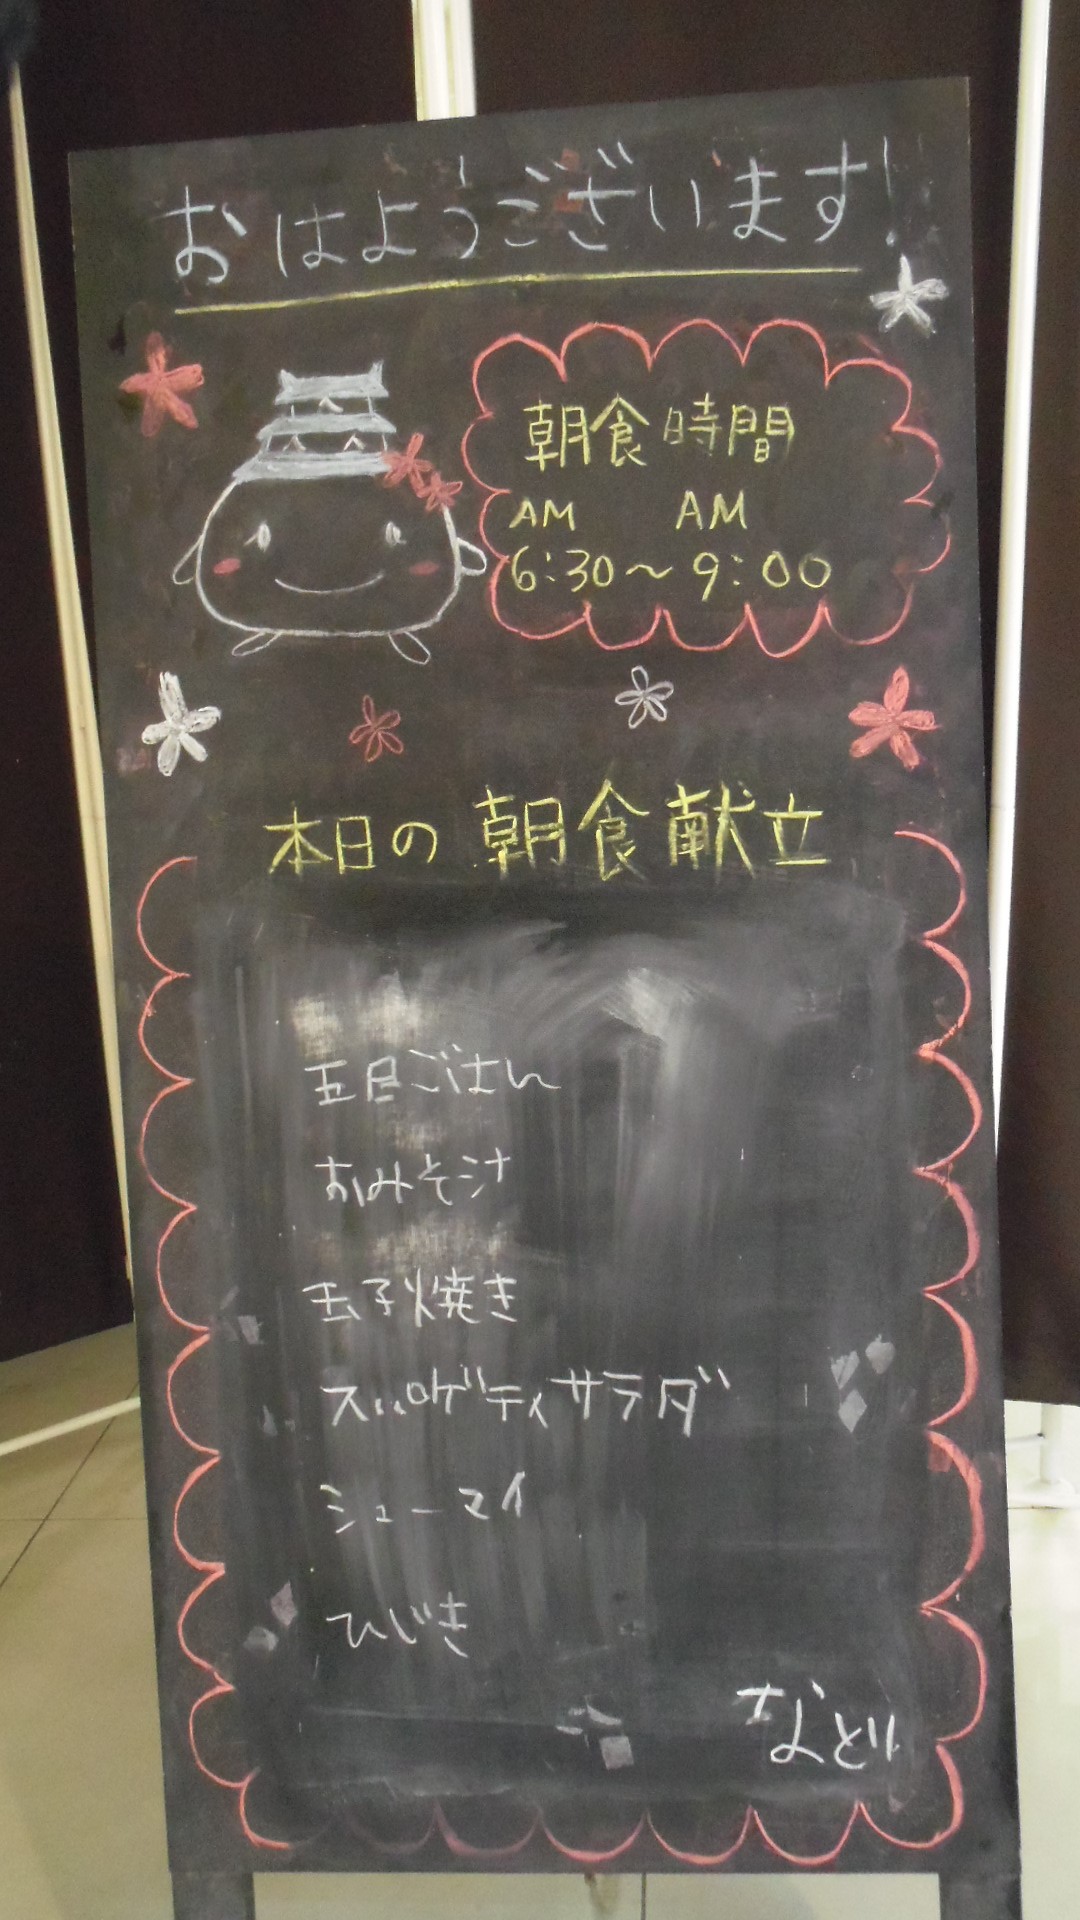 おはようございます!
朝食時間
AM AM
6:30～9:00
本日の朝食献立
五目ごはん
おみそ汁
玉子焼き
スパゲティサラダ
シューマイ
ひじき
なとり